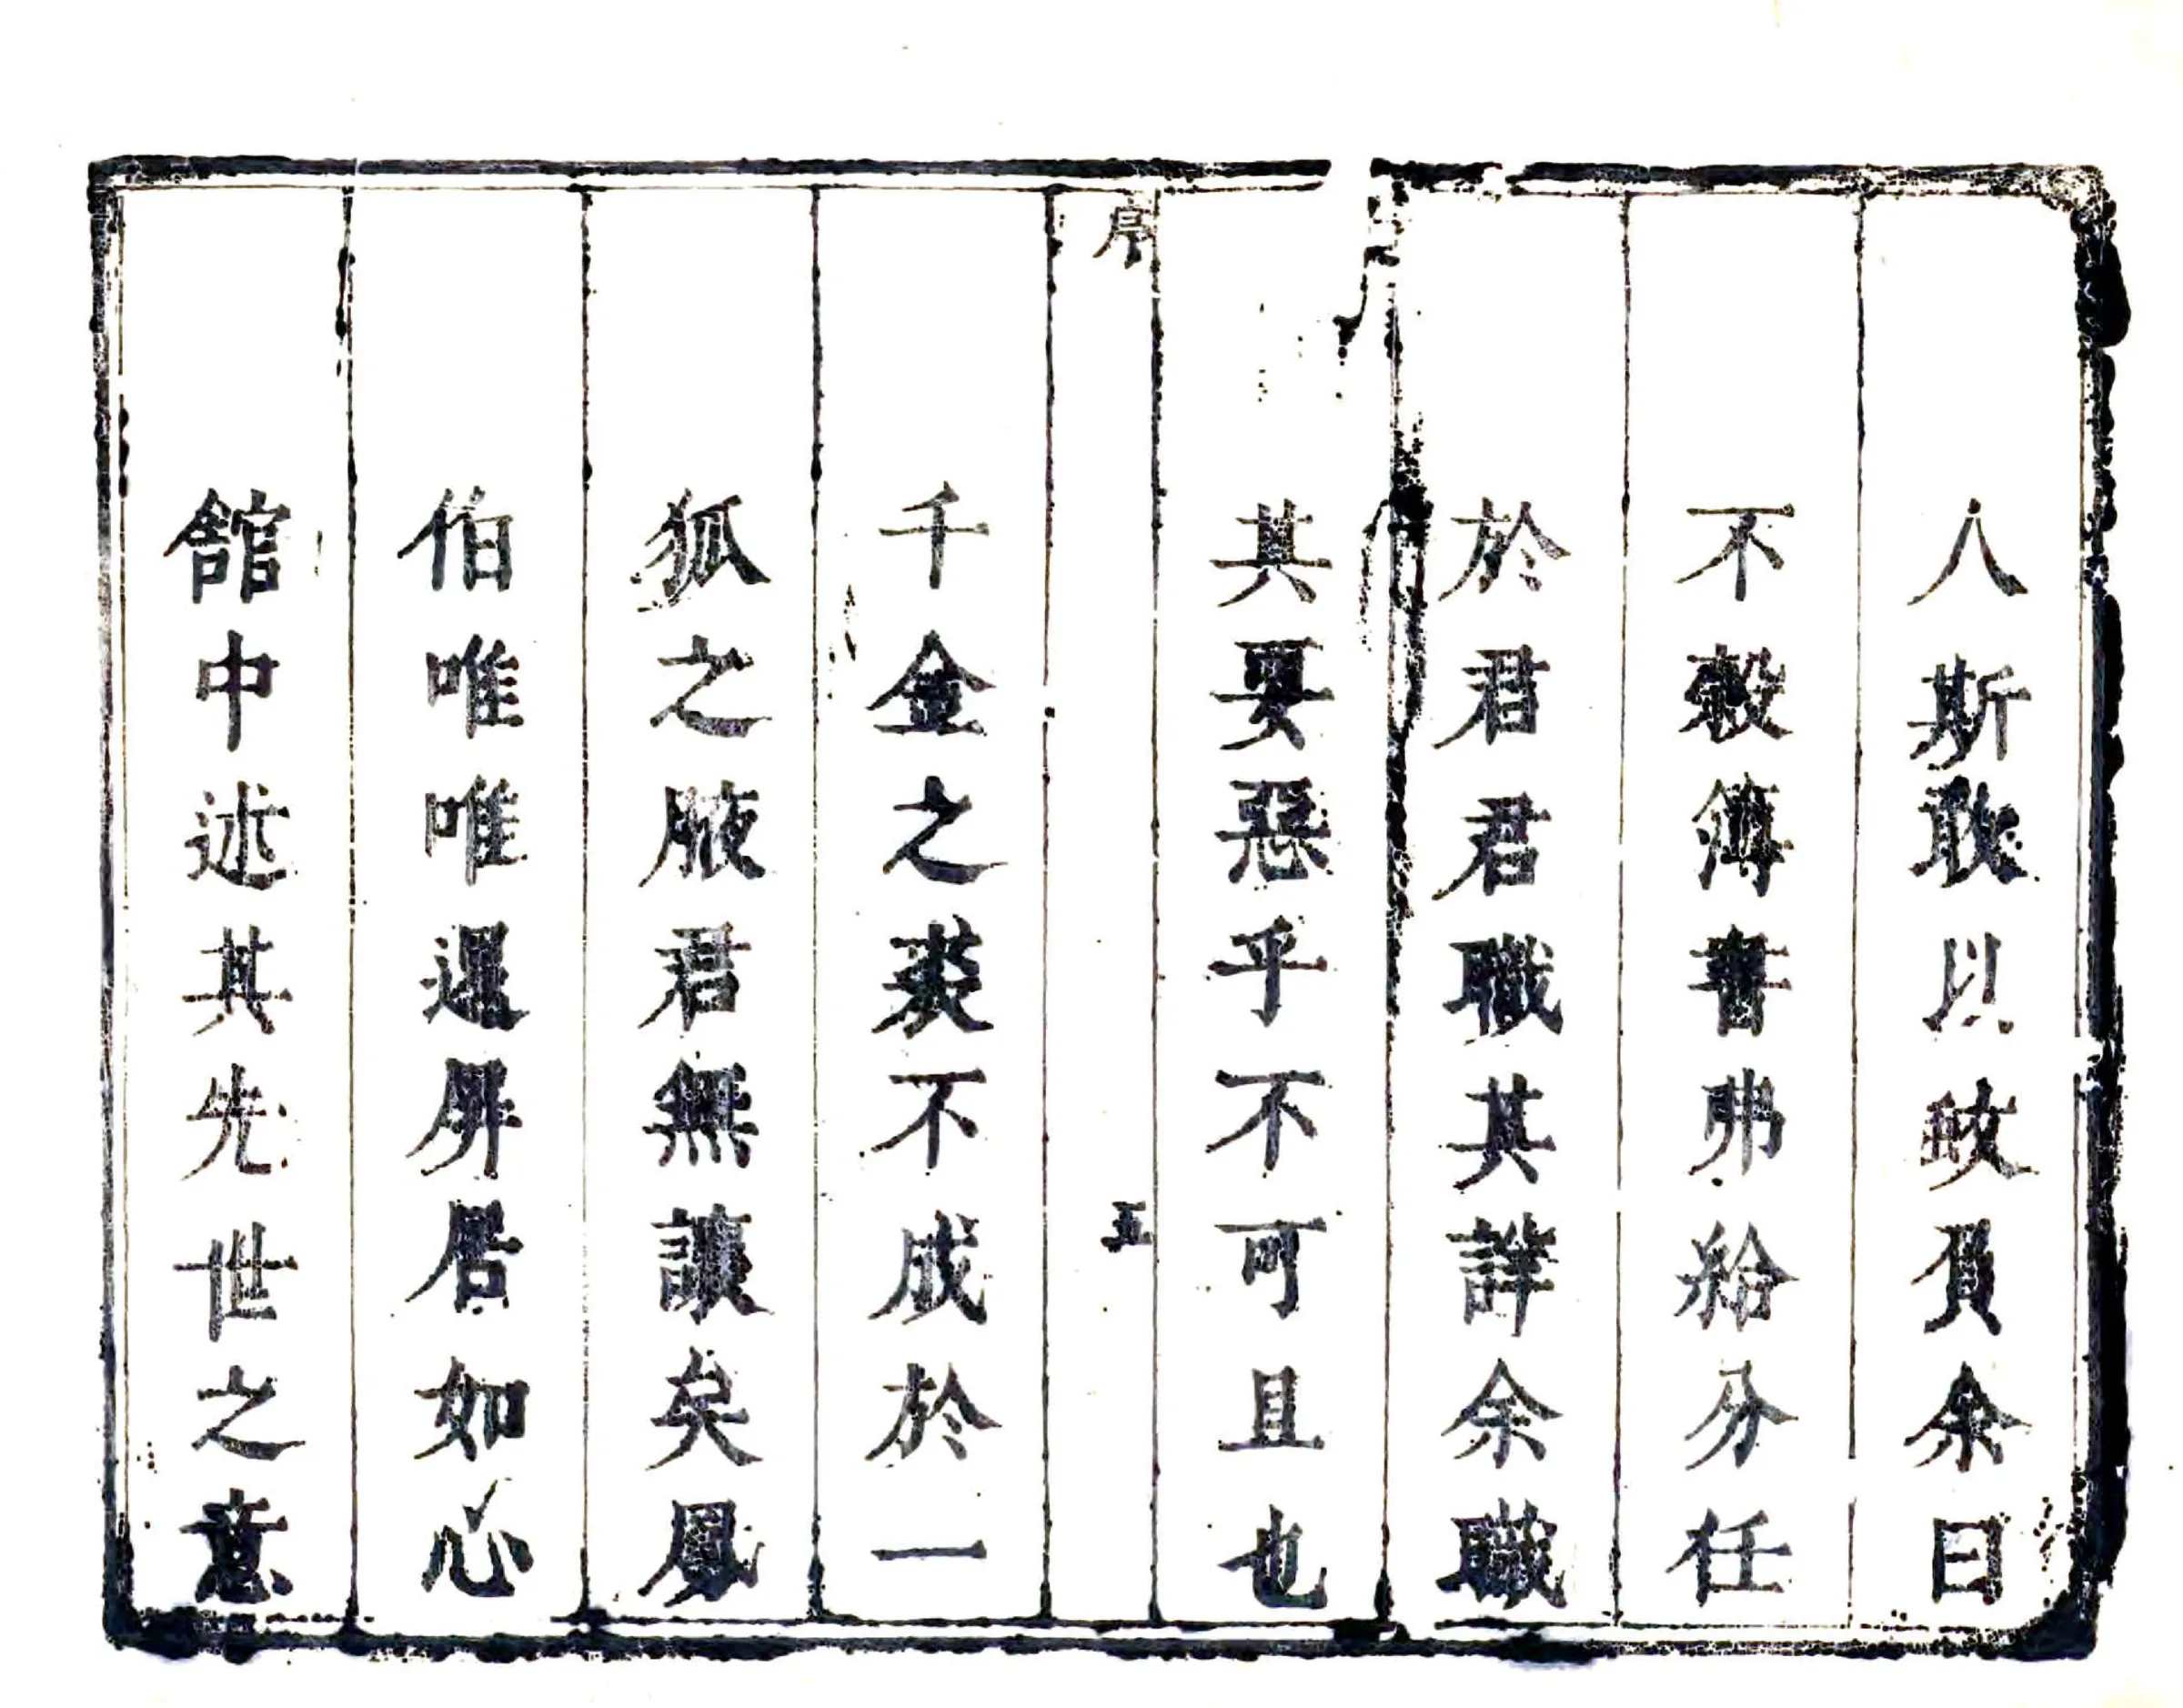 人斯敢以政負余曰
不穀簿書弗給分任
於君君職其詳余職
其要惡乎不可且也
序
五
千金之裘不成於一
狐之腋君無讓矣鳳
伯唯唯還屏居如心
館中述其先世之意